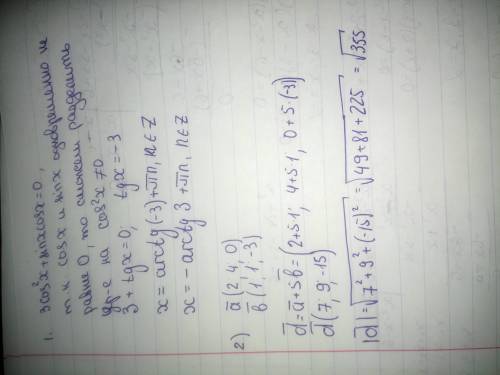 1. 3cos²x+sinxcosx=0,
т.к cosx и sinx одновременно не
равно 0, то сможем разделить
ур-е на cos²x ≠0.
3 + tgx=0; tgx=-3
x = arctg(-3)+πn, n∈Z
x = -arctg 3 +πn, n∈Z
2) a̅ (2; 4; 0)
b̅ (1; 1; -3)
d̅=a̅+5b̅=(2+5·1; 4+5·1; 0+5·(-3))
d̅(7; 9; -15)
|d̅|=√7²+9²+(-15)² =√49+81+225 =√355